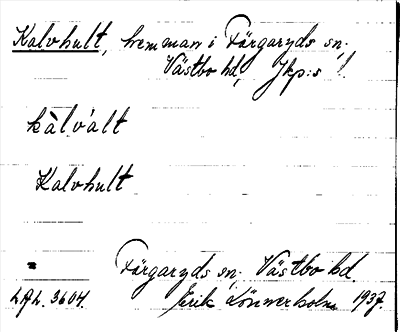 Kalvhult, hemman i Färgaryds sn.
Västbo hd, Jkp:s l.
kàlvált
Kalvhult
" Färgaryds sn. Västbo hd.
LAL. 3604. Erik Lönnerholm 1937.